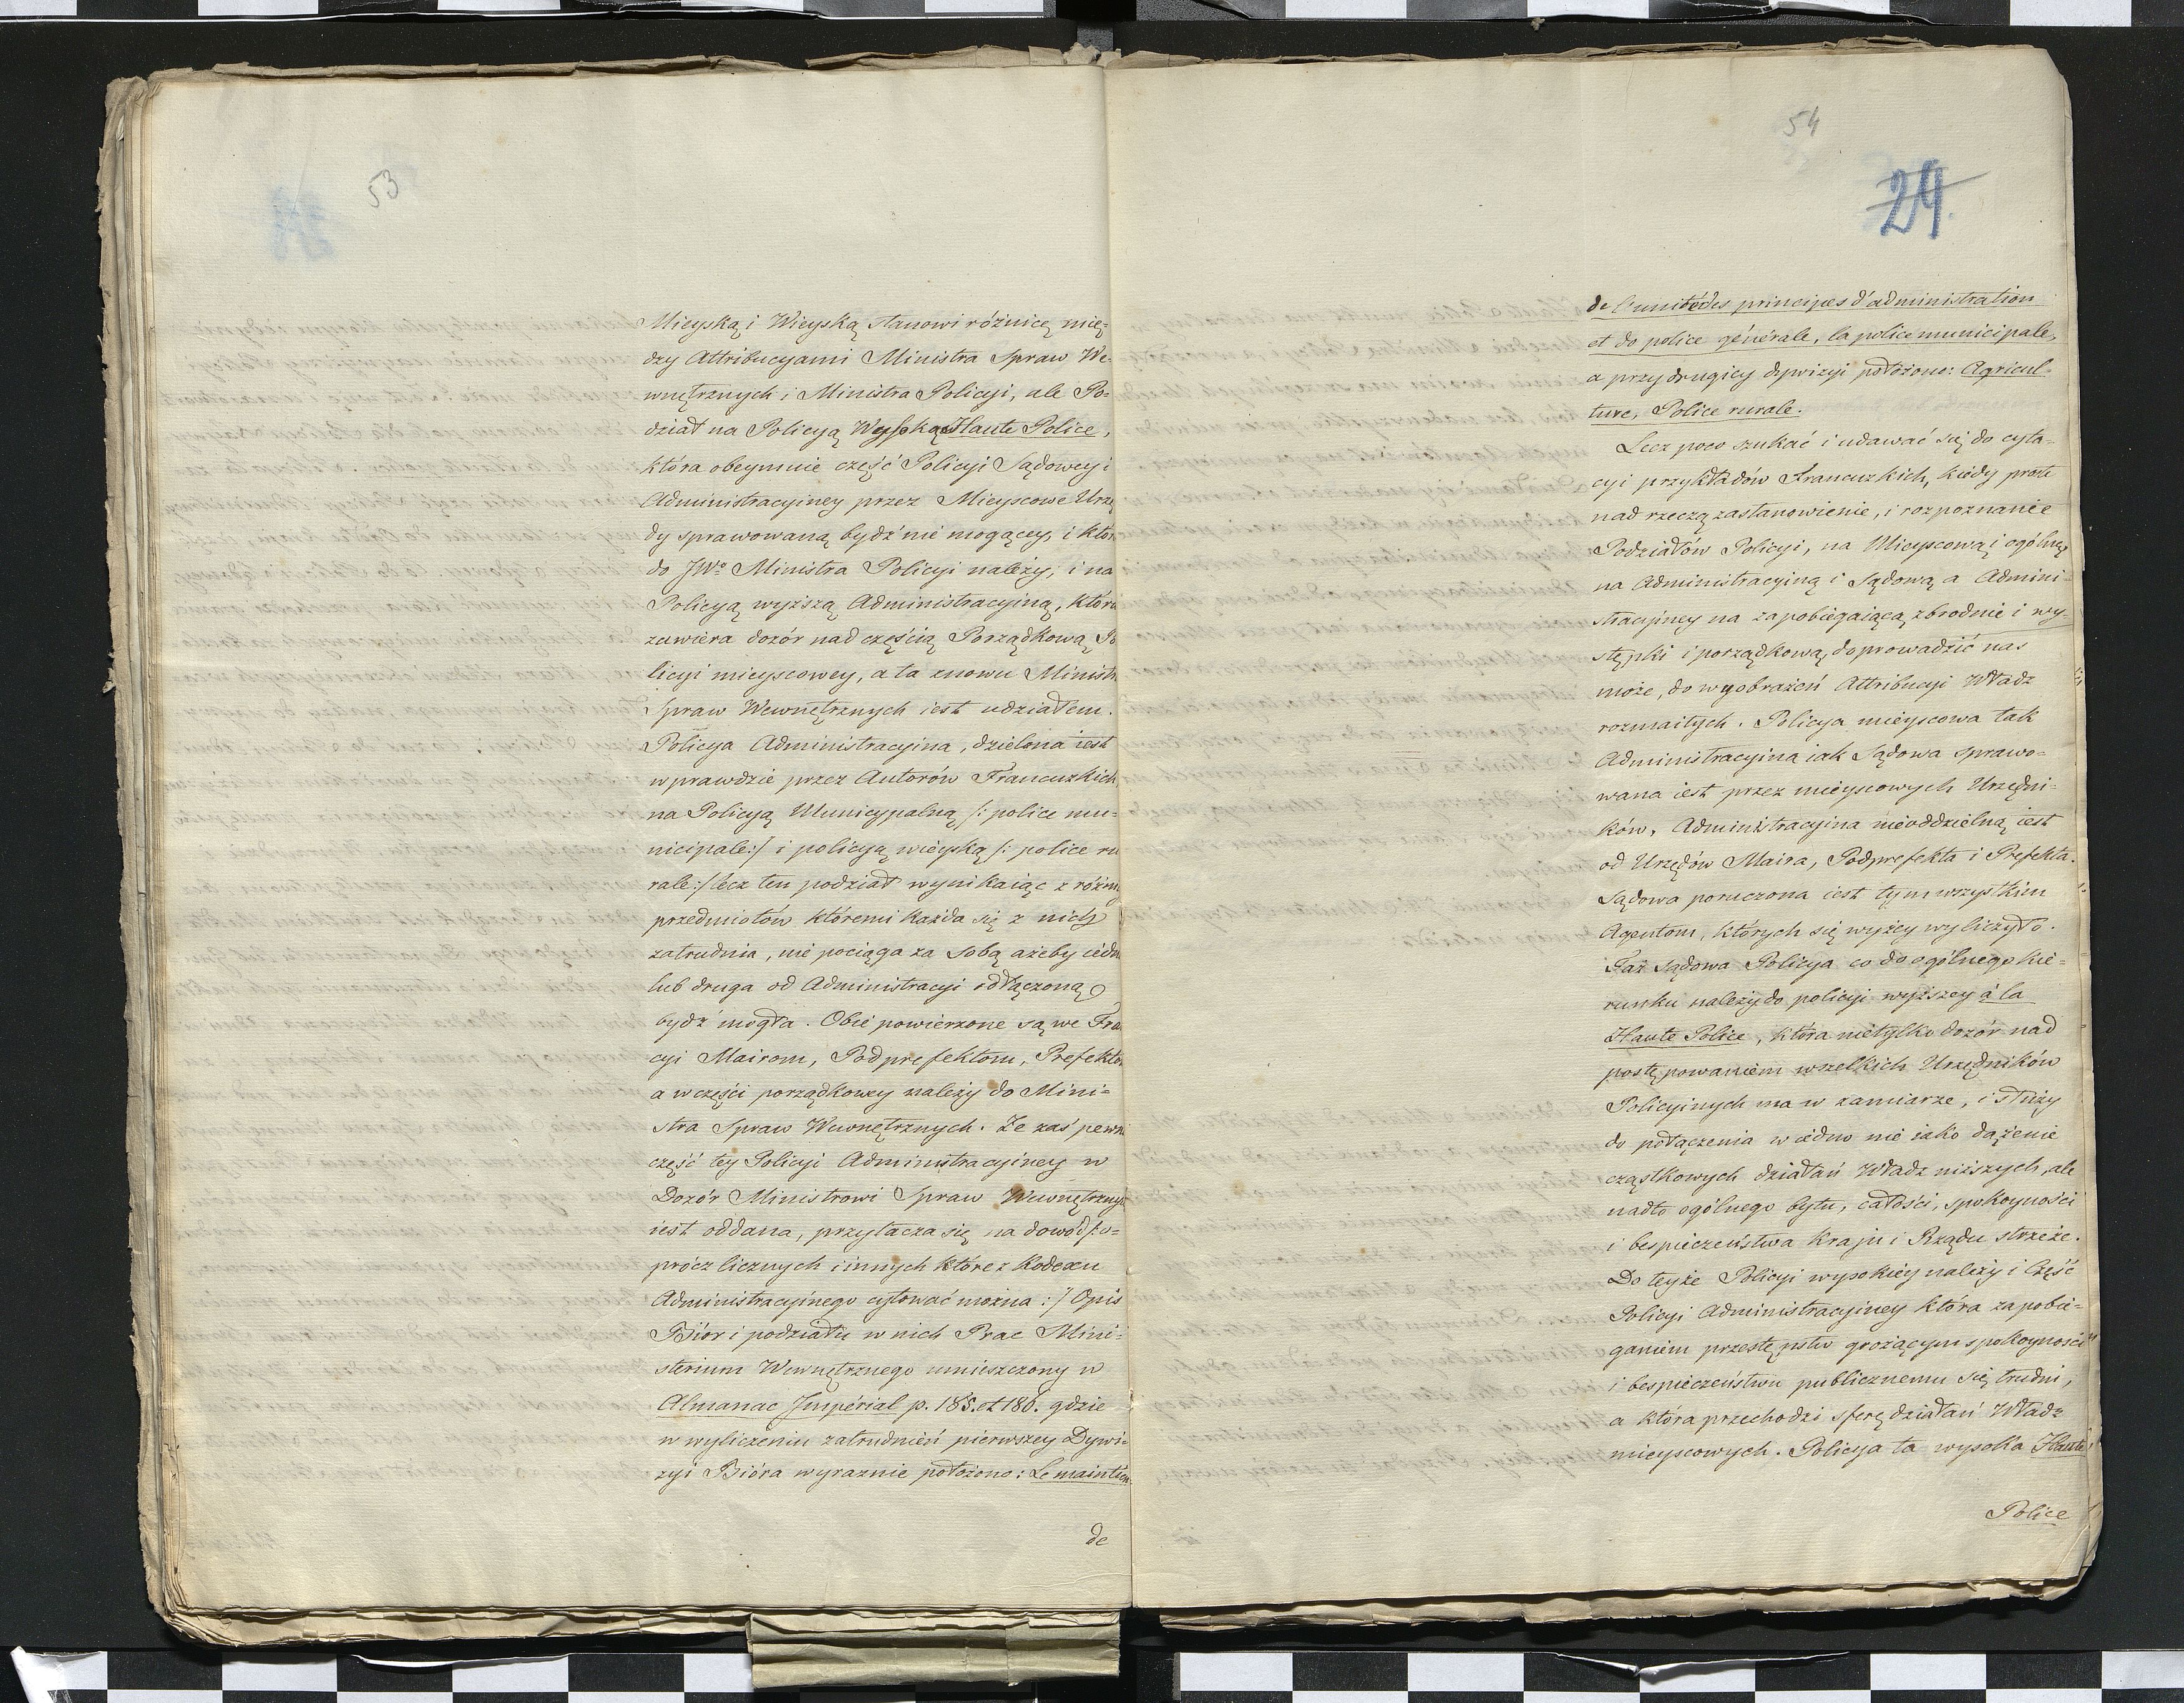 53
Mieyską i Wieyską stanowi różnicę mię-
dzy Attribucyami Ministra Spraw We-
wnętrznych i Ministra Policyi, ale Po-
dział na Policyą Wysoką Haute Police,
która obeymuie część Policyi Sądowey i
Administracyiney przez Mieyscowe Urzę
dy sprawowaną bydź nie mogącey, i któr
do JWo Ministra Policyi należy, i na
Policyą wyższą Administracyiną, która
zawiera dozór nad częścią Porządkową Po
licyi mieyscowey, a ta znowu Ministr
Spraw Wewnętrznych iest udziałem.
Policya Administracyina, dzielona iest
wprawdzie przez Autorów Francuzkich
na Policyą Municypalną /: police mu-
nicipale:/ i policyą wieyską /: police ru
rale:/ lecz ten podział wynikaiąc z różny
przedmiotów któremi każda się z nich
zatrudnia, nie pociąga za sobą ażeby iedn
lub druga od Administracyi odłączoną
bydź mogła. Obie powierzone są we Fra
cyi Mairom, Podprefektom, Prefekto
a w części porządkowey należy do Mini-
stra Spraw Wewnętrznych. Że zaś pewn
część tey Policyi Administracyiney w
Dozór Ministrowi Spraw Wewnętrzny
iest oddana, przytacza się na dowód /: o-
prócz licznych innych które z Kodexu
Administracyinego cytować można :/ Opis
Biór i podziału w nich Prac Mini-
sterium Wewnętrznego umieszczony w
Almanac Impérial p. 185. et 186. gdzie
w wyliczeniu zatrudnień pierwszey Dywi-
zyi Bióra wyraznie położono: Le maintien
de
54
24.
de l'unité des principes d'administration
et do police générale, la police municipale,
a przy drugiey dywizyi położono: Agricul-
ture, Police rurale.
Lecz poco szukać i udawać się do cyta-
cyi przykładów Francuzkich, kiedy proste
nad rzeczą zastanowienie, i rozpoznanie
Podziałów Policyi, na Mieyscową i ogólną
na Administracyiną i Sądową a Admini-
stracyiney na zapobiegaiącą zbrodnie i wy-
stępki i porządkową, doprowadzić nas
może, do wyobrażeń Attribucyi Władz
rozmaitych. Policya mieyscowa tak
Administracyina iak Sądowa sprawo-
wana iest przez mieyscowych Urzędni-
ków, Administracyina nieoddzielną iest
od Urzędów Maira, Podprefekta i Prefekta.
Sądowa poruczona iest tym wszystkim
Agentom, których się wyżey wyliczyło.
Taż Sądowa Policya co do ogólnego kie-
runku należy do policyi wyższey á la
Haute Police, która nietylko dozór nad
postępowaniem wszelkich Urzędników
Policyinych ma w zamiarze, i służy
do połączenia w iedno nie iako dążenie
cząstkowych działań Władz niższych, ale
nadto ogólnego bytu, całości, spokoyności
i bespieczeństwa Kraju i Rządu strzeże.
Do teyże Policyi wysokiey należy i Część
Policyi Administracyiney która zapobie-
ganiem przestępstw grożącym spokoyności
i bespieczeństwu publicznemu się trudni,
a która przechodzi sferę działań Władz
mieyscowych. Policya ta wysoka Haute
Police